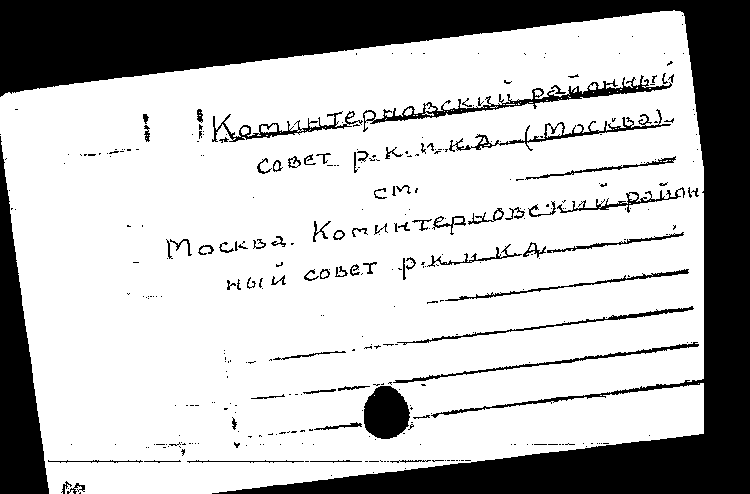 Коминтерновский районный
совет р.к. и к.д. (Москва).
см.
Москва. Коминтерновский район-
ный совет р.к. и к.д.